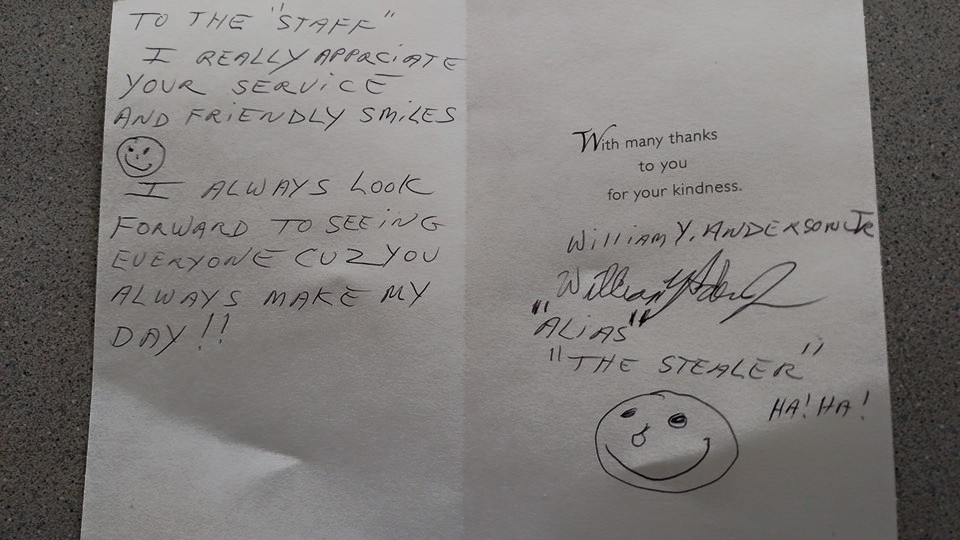 TO THE "STAFF"
I REALLY APPRCIATE
YOUR SERVICE
AND FRIENDLY SMILES
I ALWAYS LOOK
FORWARD TO SEEING
EVERYONE CUZ YOU
ALWAYS MAKE MY
DAY!!
With many thanks
to you
for your kindness.
William Y. ANDERSON JR
"ALIAS"
"THE STEALER"
HA! HA!